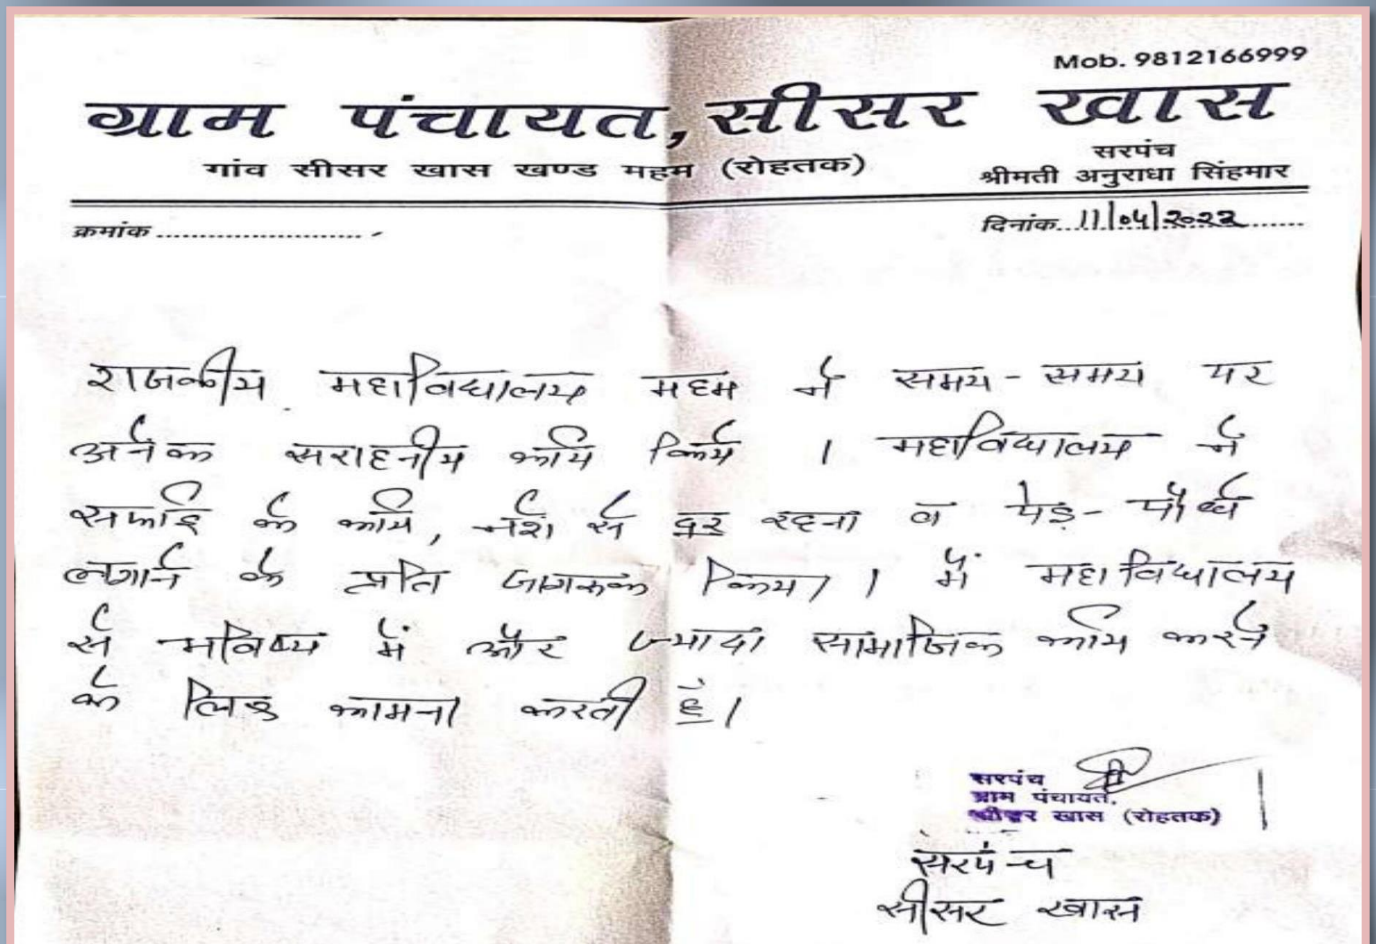 Mob. 9812166999
ग्राम पंचायत, सीसर खास
गांव सीसर खास खण्ड महम (रोहतक)
सरपंच
श्रीमती अनुराधा सिंहमार
क्रमांक ........................
दिनांक 11/04/2022
राजकीय महाविद्यालय महम ने समय-समय पर
अनेक सराहनीय कार्य किये । महाविद्यालय ने
सफाई के कार्य, नशे से दूर रहना व पेड़-पौधे
लगाने के प्रति जागरूक किया । मैं महाविद्यालय
से भविष्य में और ज्यादा सामाजिक कार्य करने
के लिए कामना करती हूँ।
सरपंच
ग्राम पंचायत,
सीसर खास (रोहतक)
सरपंच
सीसर खास